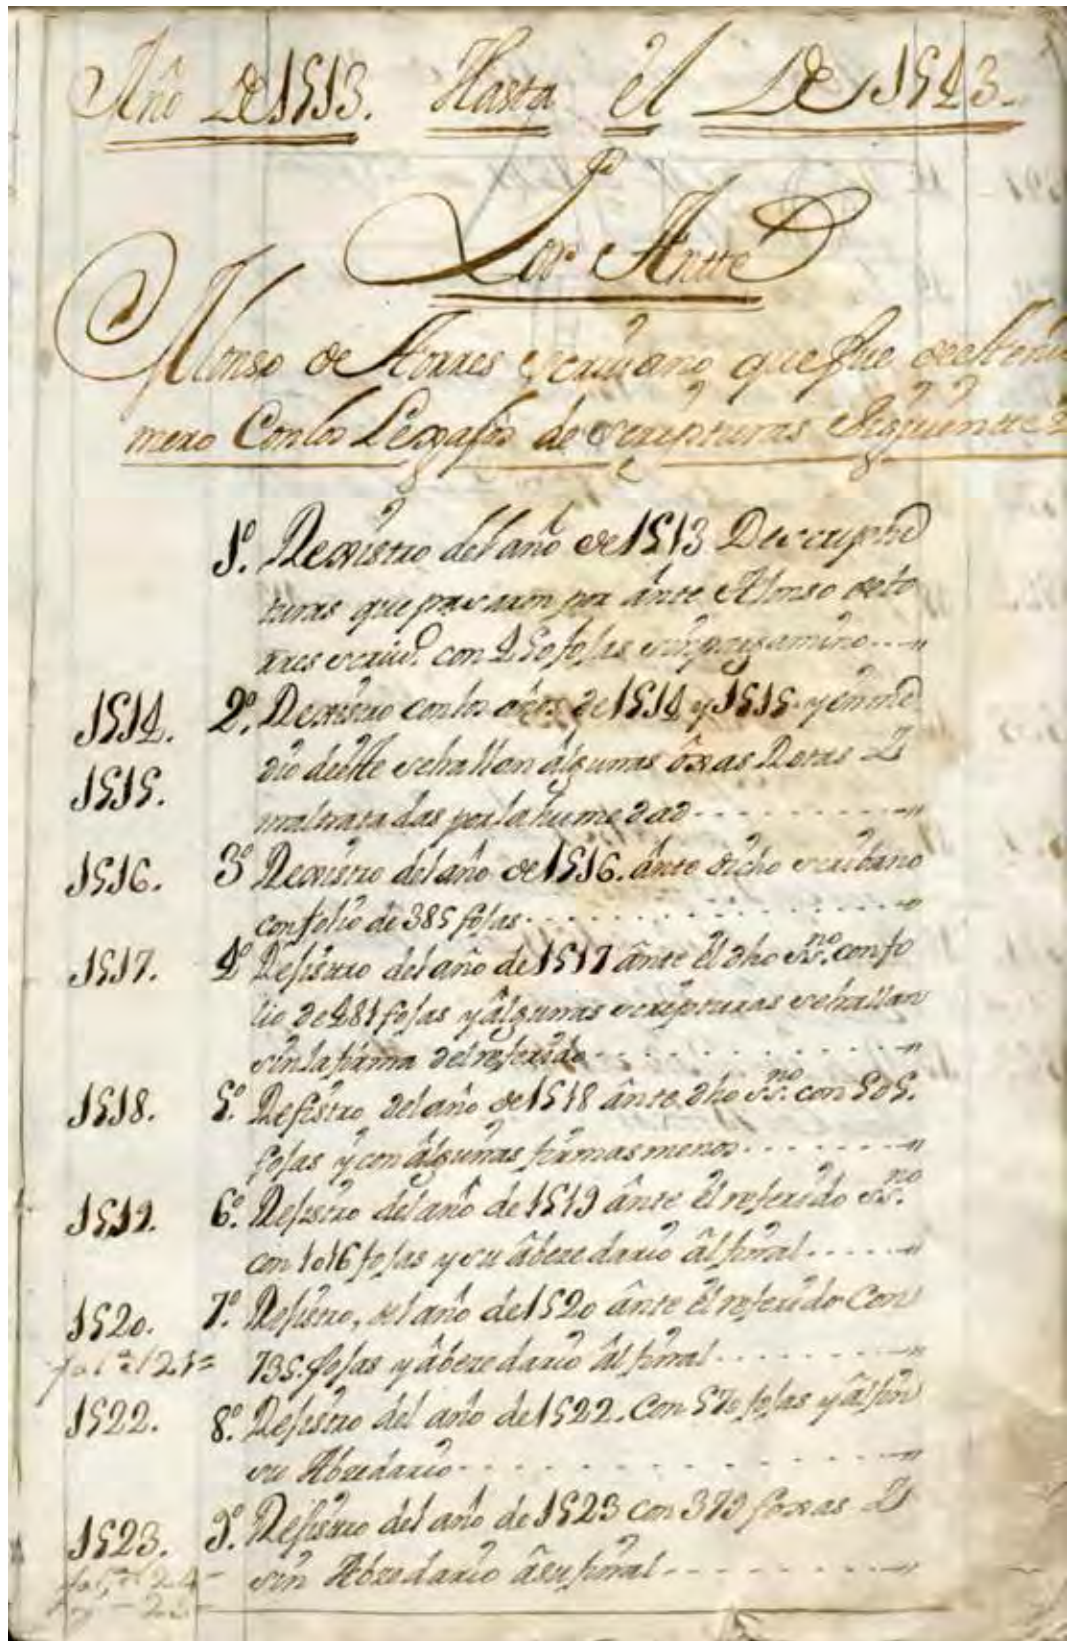 Año De 1513. Hasta el De 1523.
Por Antte
Alonso de Torres escriuano que fue del nu
mero Con los Legajos de escripturas siguientes
1º. Rexistro del año de 1513 De escrip
turas que pasaron por ante Alonso de to
rres escriuº. con 250 fojas sin pergamino
1514. 2º. Rexistro con los años de 1514 y 1515. y en me
1515. dio deste se hallan algunas ôxas Rotas Y
maltratadas por la humedad
1516. 3º Rexistro del año de 1516. ânte dicho escribano
con folio de 385 fojas
1517. 4º Rejistro del año de 1517 ânte êl dho ssno. con fo
lio de 481 fojas y âlgunas escripturas se hallan
sin la firma del referido
1518. 5º. Rejistro del año de 1518 ânte dho ssno. con 505.
fojas y con âlgunas firmas menos
1519. 6º. Rejistro del año de 1519 ânte êl referido ssno.
con 1016 fojas y su âbezedario âl final
1520. 7º. Rejistro, del año de 1520 ânte êl referido Con
falta el 21= 735. fojas y âbezedario âl final
1522. 8º. Rejistro del año de 1522. Con 570 fojas y âl fin
su Abzedario
1523. 9º. Rejistro del año de 1523 con 379 foxas Y
sin Abzedario âsu final